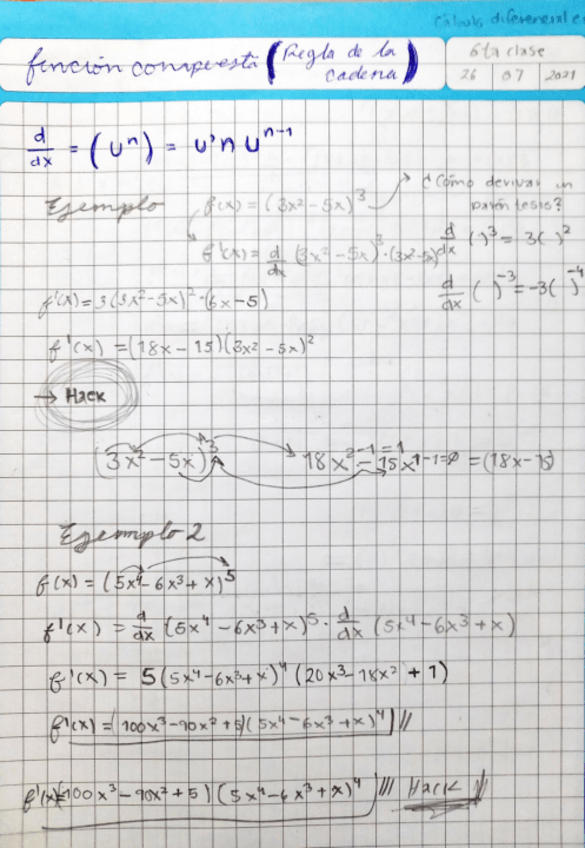 Cálculo diferencial e
función compuesta (Regla de la cadena)
6ta clase
26 07 2021
d/dx = (uⁿ) = u'n uⁿ⁻¹
Ejemplo f(x) = (3x² - 5x)³
¿Cómo derivar un
paréntesis?
f'(x) = d/dx (3x² - 5x)³ · (3x² - 5x)
d/dx ( )³ = 3( )²
d/dx ( )⁻³ = -3( )⁻⁴
f'(x) = 3(3x² - 5x)² · (6x - 5)
f'(x) = (18x - 15)(3x² - 5x)²
→ Hack
(3x² - 5x)³ 18x²⁻¹⁼¹ - 15x¹⁻¹⁼⁰ = (18x - 15)
Ejemplo 2
f(x) = (5x⁴ - 6x³ + x)⁵
f'(x) = d/dx (5x⁴ - 6x³ + x)⁵ · d/dx (5x⁴ - 6x³ + x)
f'(x) = 5(5x⁴ - 6x³ + x)⁴ (20x³ - 18x² + 1)
f'(x) = (100x³ - 90x² + 5)(5x⁴ - 6x³ + x)⁴ //
f'(x) = (100x³ - 90x² + 5)(5x⁴ - 6x³ + x)⁴ /// Hack